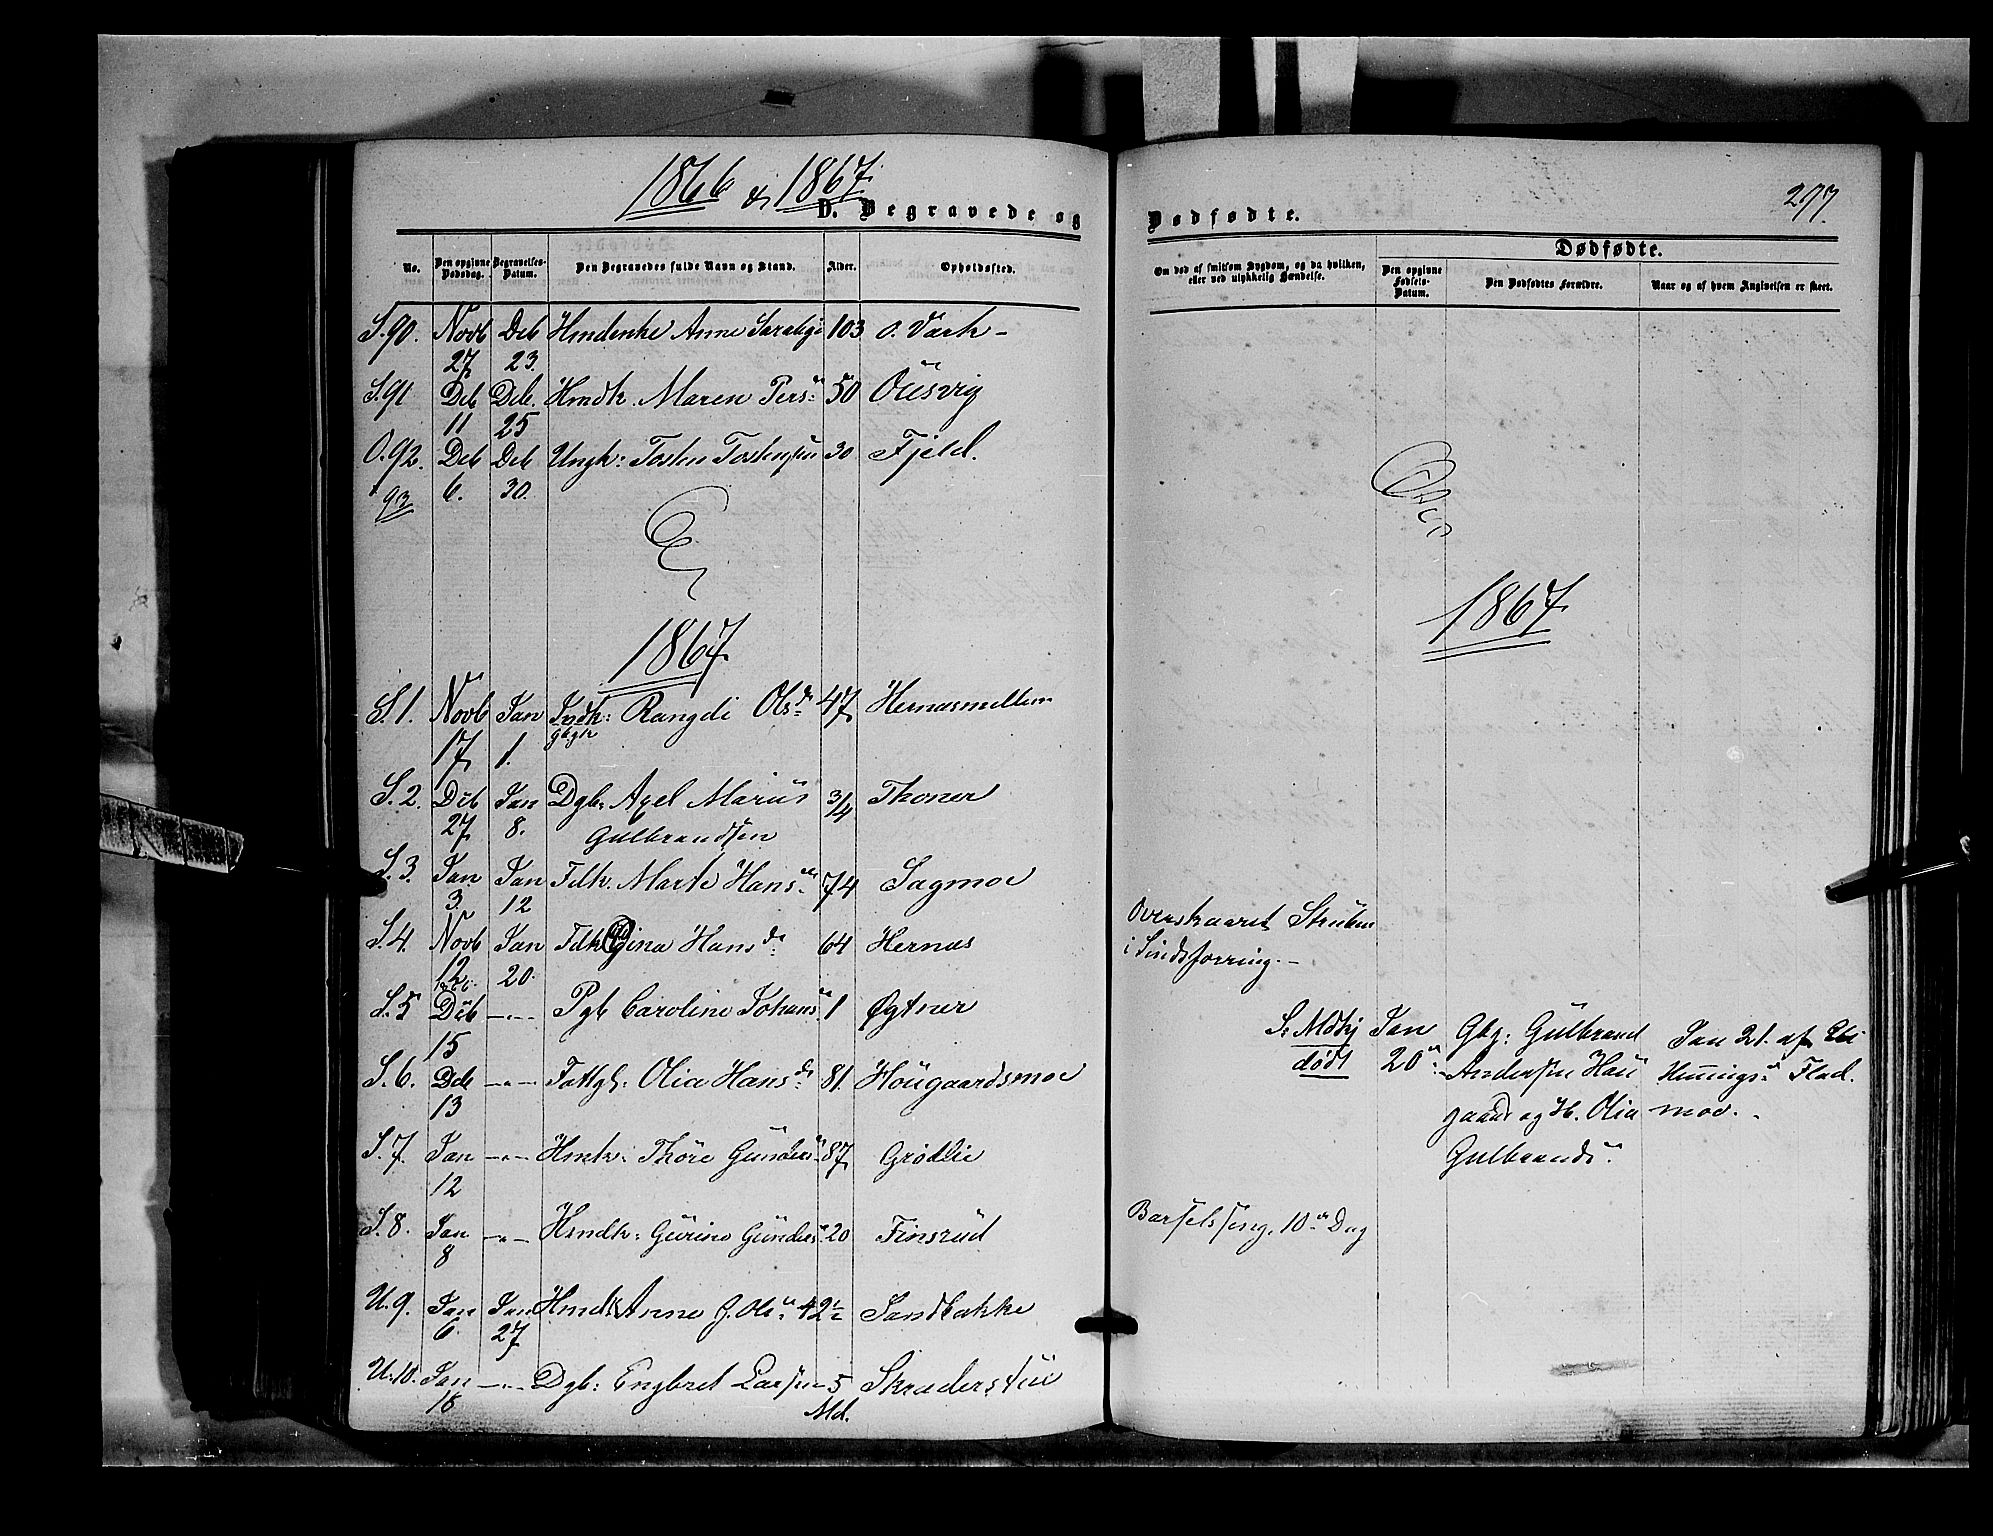 1866 & 1867.
D. Begravede og Dødfødte.
297.
No. Den opgivne Dødsdag. Begravelses-Datum. Den Begravedes fulde Navn og Stand. Alder. Opholdssted.
Om død af smitsom Sygdom, og da hvilken, eller ved ulykkelig Hændelse.
Dødfødte.
Den opgivne Fødsels-Datum. Den Dødfødtes Forældre. Naar og af hvem Angivelsen er skeet.
S. 90. Novb Deb Anne 103
27 23.
S. 91 Deb Deb. Hmdk. Maren Pers 50
11 25
O. 92. Deb Deb Ungk: Tosten Tostensen 30 Fjeld.
93 6. 30.
1867.
1867.
S. 1. Novb Jan Rangdi Ols 47
17 1.
S. 2. Deb Jan Dgb: Axel Marius 3/4 Thoner
27 8. Gulbrandsen
S. 3. Jan Jan Fdk. Marte Hans 74 Sagmoe
3. 12
S. 4. Novb Jan Fdk Gina Hans 64 Hernæs
12 20.
Overskaaret Struben
i Sindsforring.-
S. 5 Deb -„- Pgb Caroline Johans 1 Øgtner
15
S. 6. Deb -„- Olia Hans 81. Hougaardsmoe
13
Jan Gbg: Gulbrand Jan 21. af
dødt 20 Andersen Hau Flad
gaard og H. Olia moe.
Gulbrands
S. 7. Jan -„- Hmk: Thore 87
12
S. 8. Jan -„- Hmdk: Gurine 20 Finsrud
8
Barselseng. 10 Dag
U. 9. Jan Jan Hmdk Anne G. Ols 42 Sandbakke
6. 27
U. 10. Jan -„- Dgb: Engbret Larsen 5
Md.